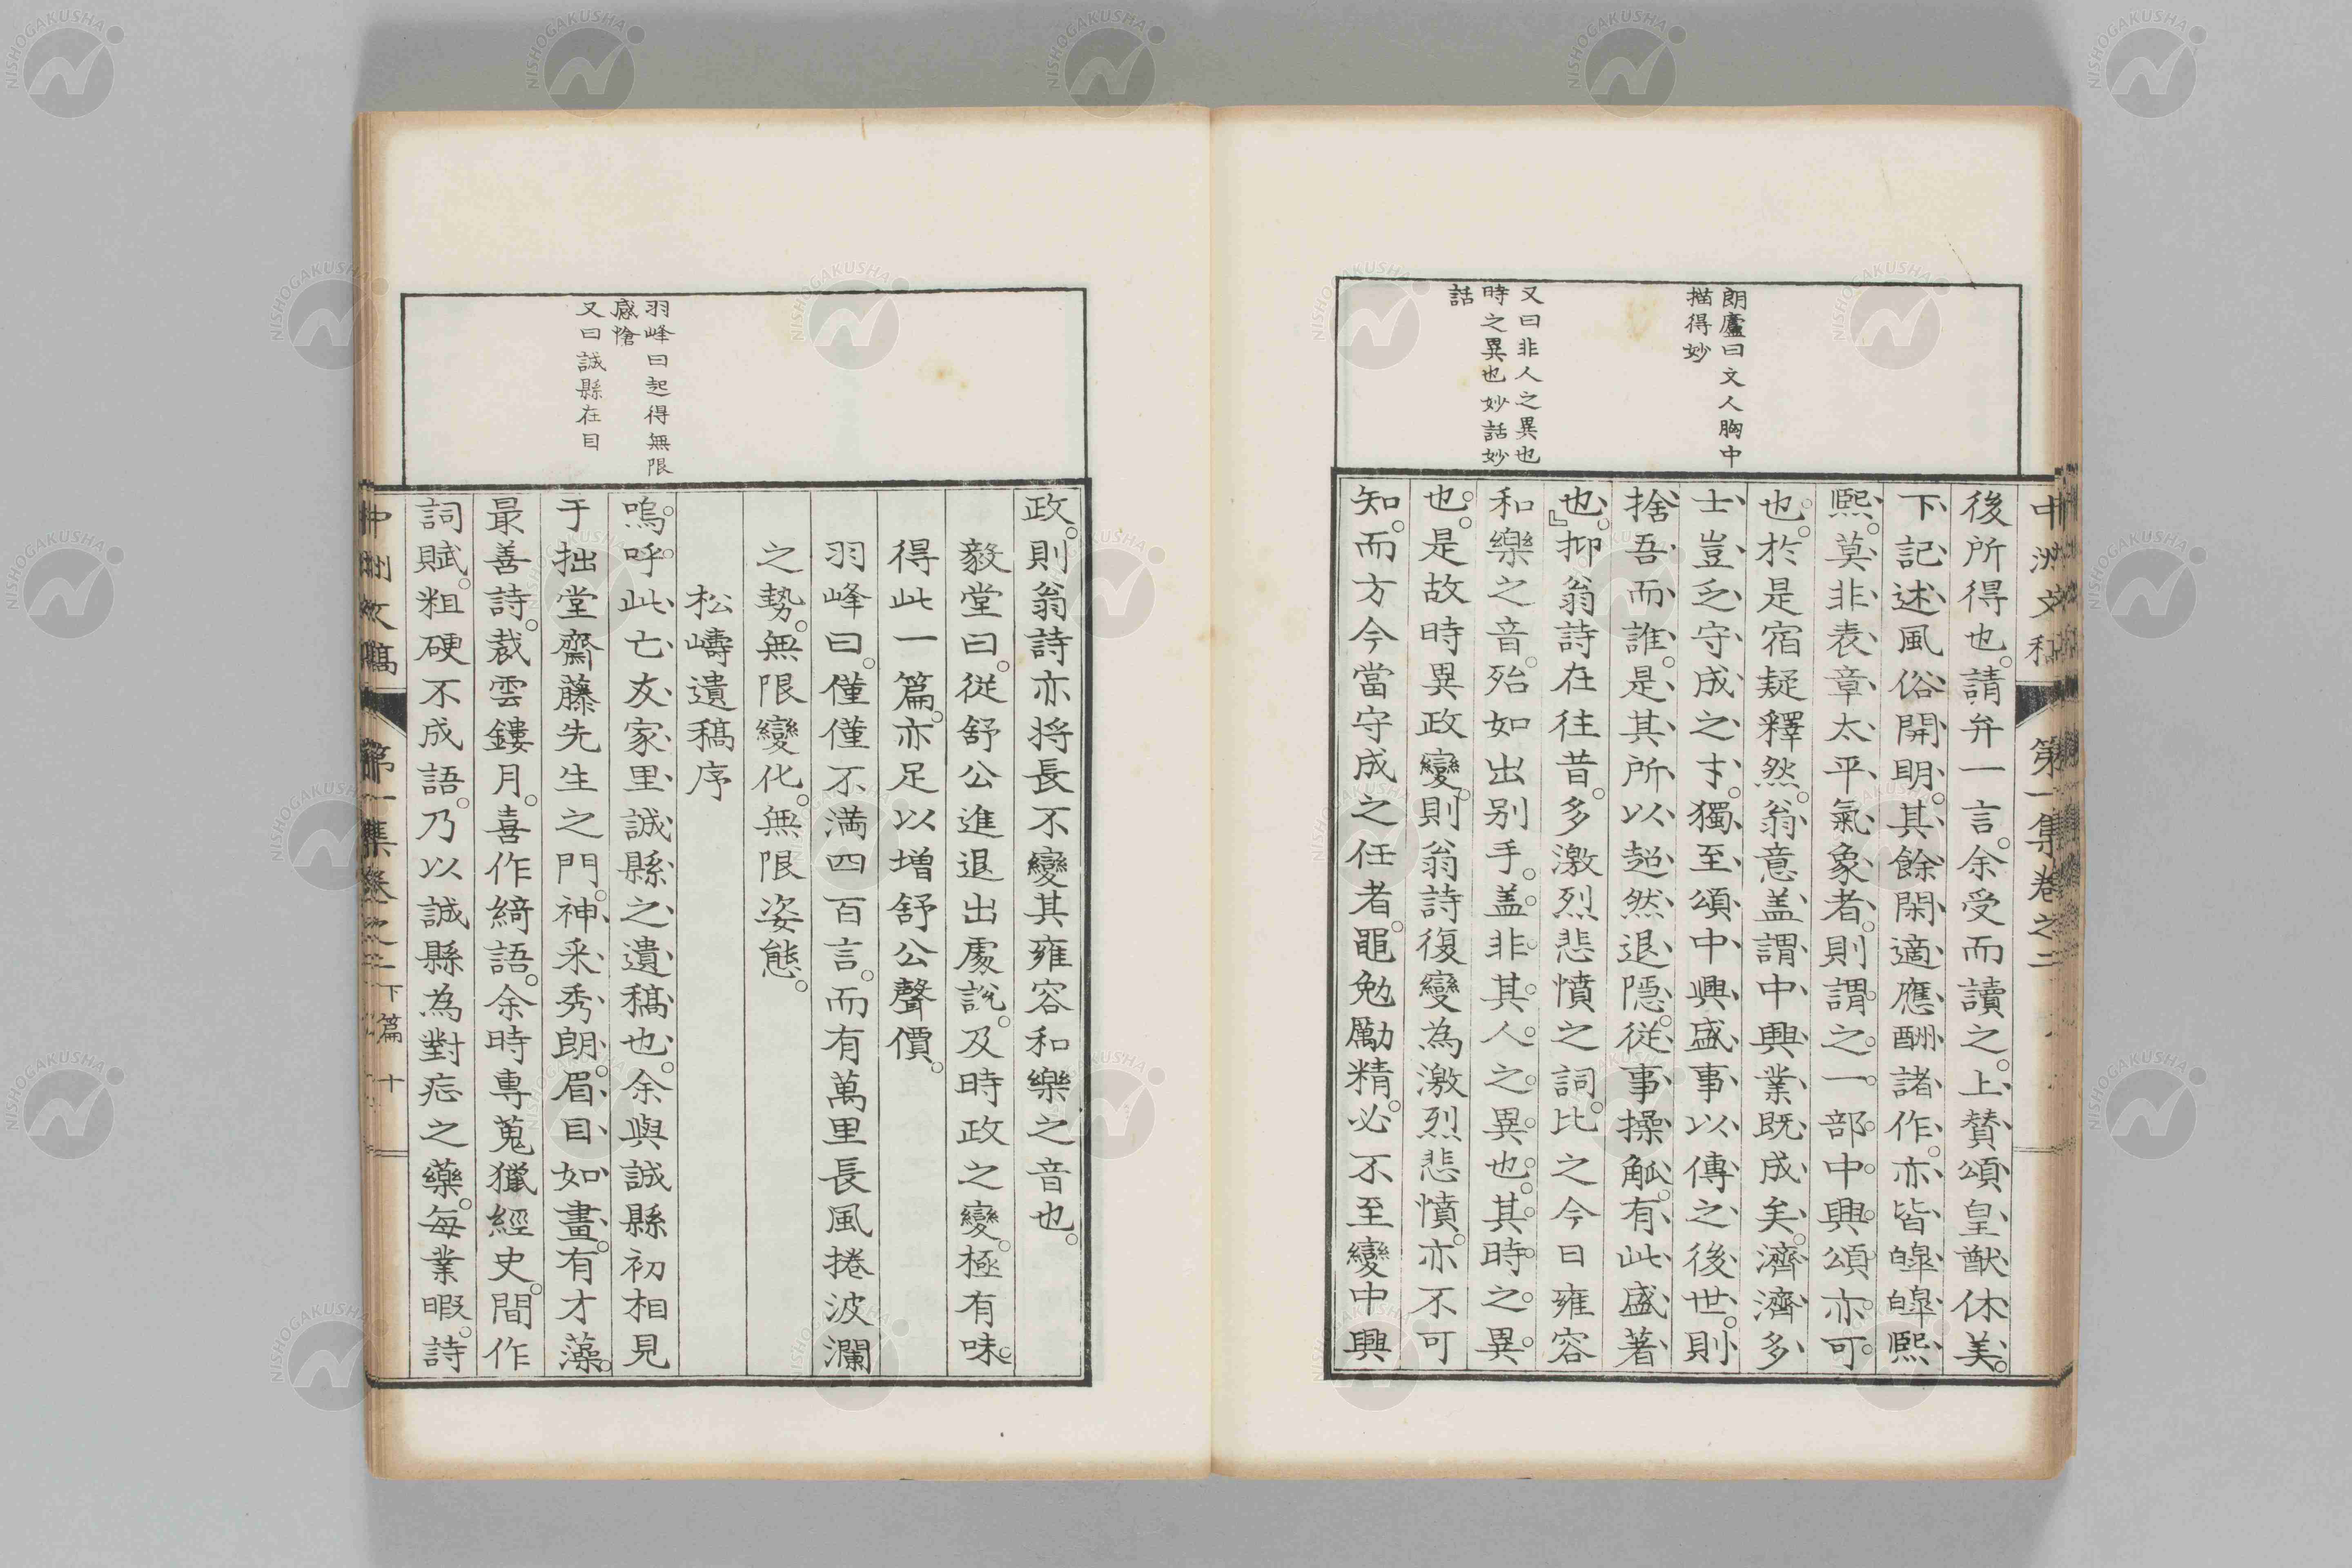 中洲文稿 第一集卷之二
朗廬曰文人胸中
描得妙
又曰非人之異也
時之異也妙話妙
話
後所得也。請弁一言。余受而讀之。上賛頌皇猷休美。
下記述風俗開明。其餘閑適應酬諸作。亦皆皥皥熙
熙。莫非表章太平氣象者。則謂之一部中興頌亦可
也。於是宿疑釋然。翁意盖謂中興業既成矣。濟濟多
士豈乏守成之才。獨至頌中興盛事以傳之後世。則
捨吾而誰。是其所以超然退隱。從事操觚。有此盛著
也。抑翁詩在往昔。多激烈悲憤之詞。比之今日雍容
和樂之音。殆如出別手。盖非其人之異也。其時之異
也。是故時異政變。則翁詩復變為激烈悲憤。亦不可
知。而方今當守成之任者。黽勉勵精。必不至變中興
羽峰曰起得無限
感愴
又曰誠縣在目
政。則翁詩亦將長不變其雍容和樂之音也。
毅堂曰。從舒公進退出處說。及時政之變。極有味。
得此一篇。亦足以增舒公聲價。
羽峰曰。僅僅不滿四百言。而有萬里長風捲波瀾
之勢。無限變化。無限姿態。
松嶹遺稿序
嗚呼。此亡友家里誠縣之遺稿也。余與誠縣初相見
于拙堂齋藤先生之門。神采秀朗。眉目如畫。有才藻。
最善詩。裁雲鏤月。喜作綺語。余時專蒐獵經史。間作
詞賦。粗硬不成語。乃以誠縣為對症之藥。每業暇。詩
中洲文稿 第一集卷之二 下篇 十
NISHOGAKUSHA